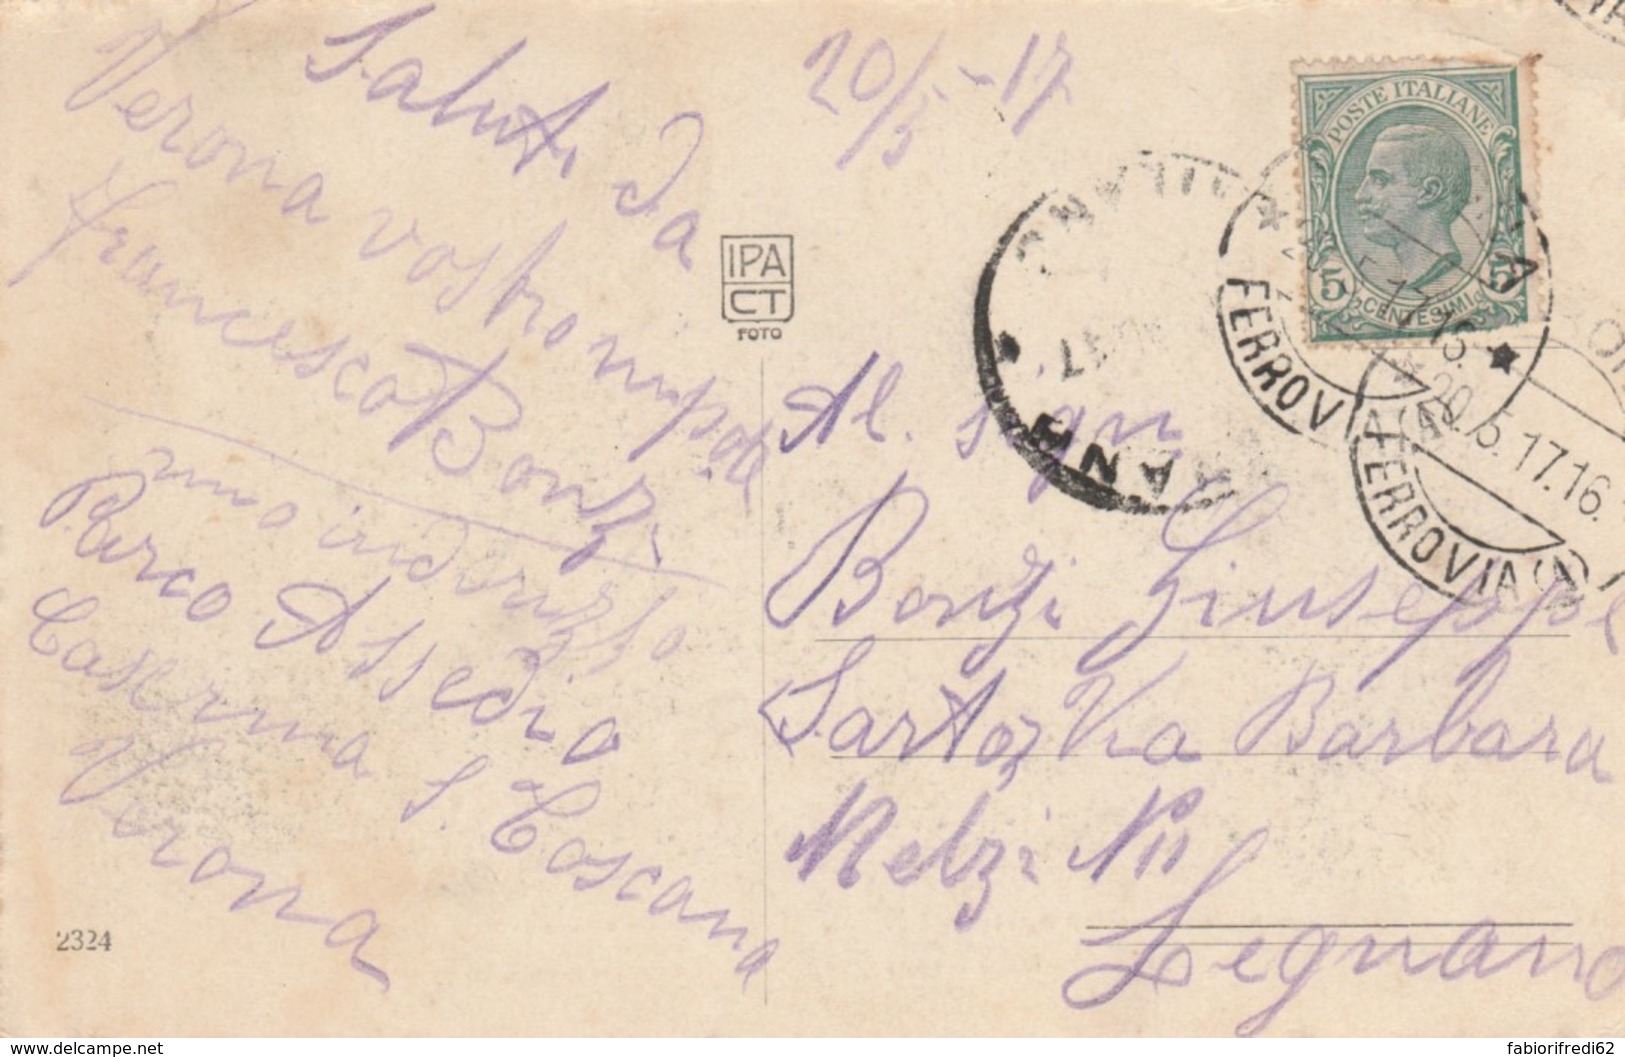 20/5-17
Saluti da
Verona vostro nipote
Francesco Bonzi
mio indirizzo
Parco Assedio
Caserma S. Toscana
Verona
2324
IPA
CT
FOTO
POSTE ITALIANE
5 CENTESIMI 5
MILANO
FERROVIA
20.5.17.16
FERROVIA (A)
Al sign
Bonzi Giuseppe
Sarto Via Barbara
Melzi N 11
Legnano
delcampe.net
fabiorifredi62